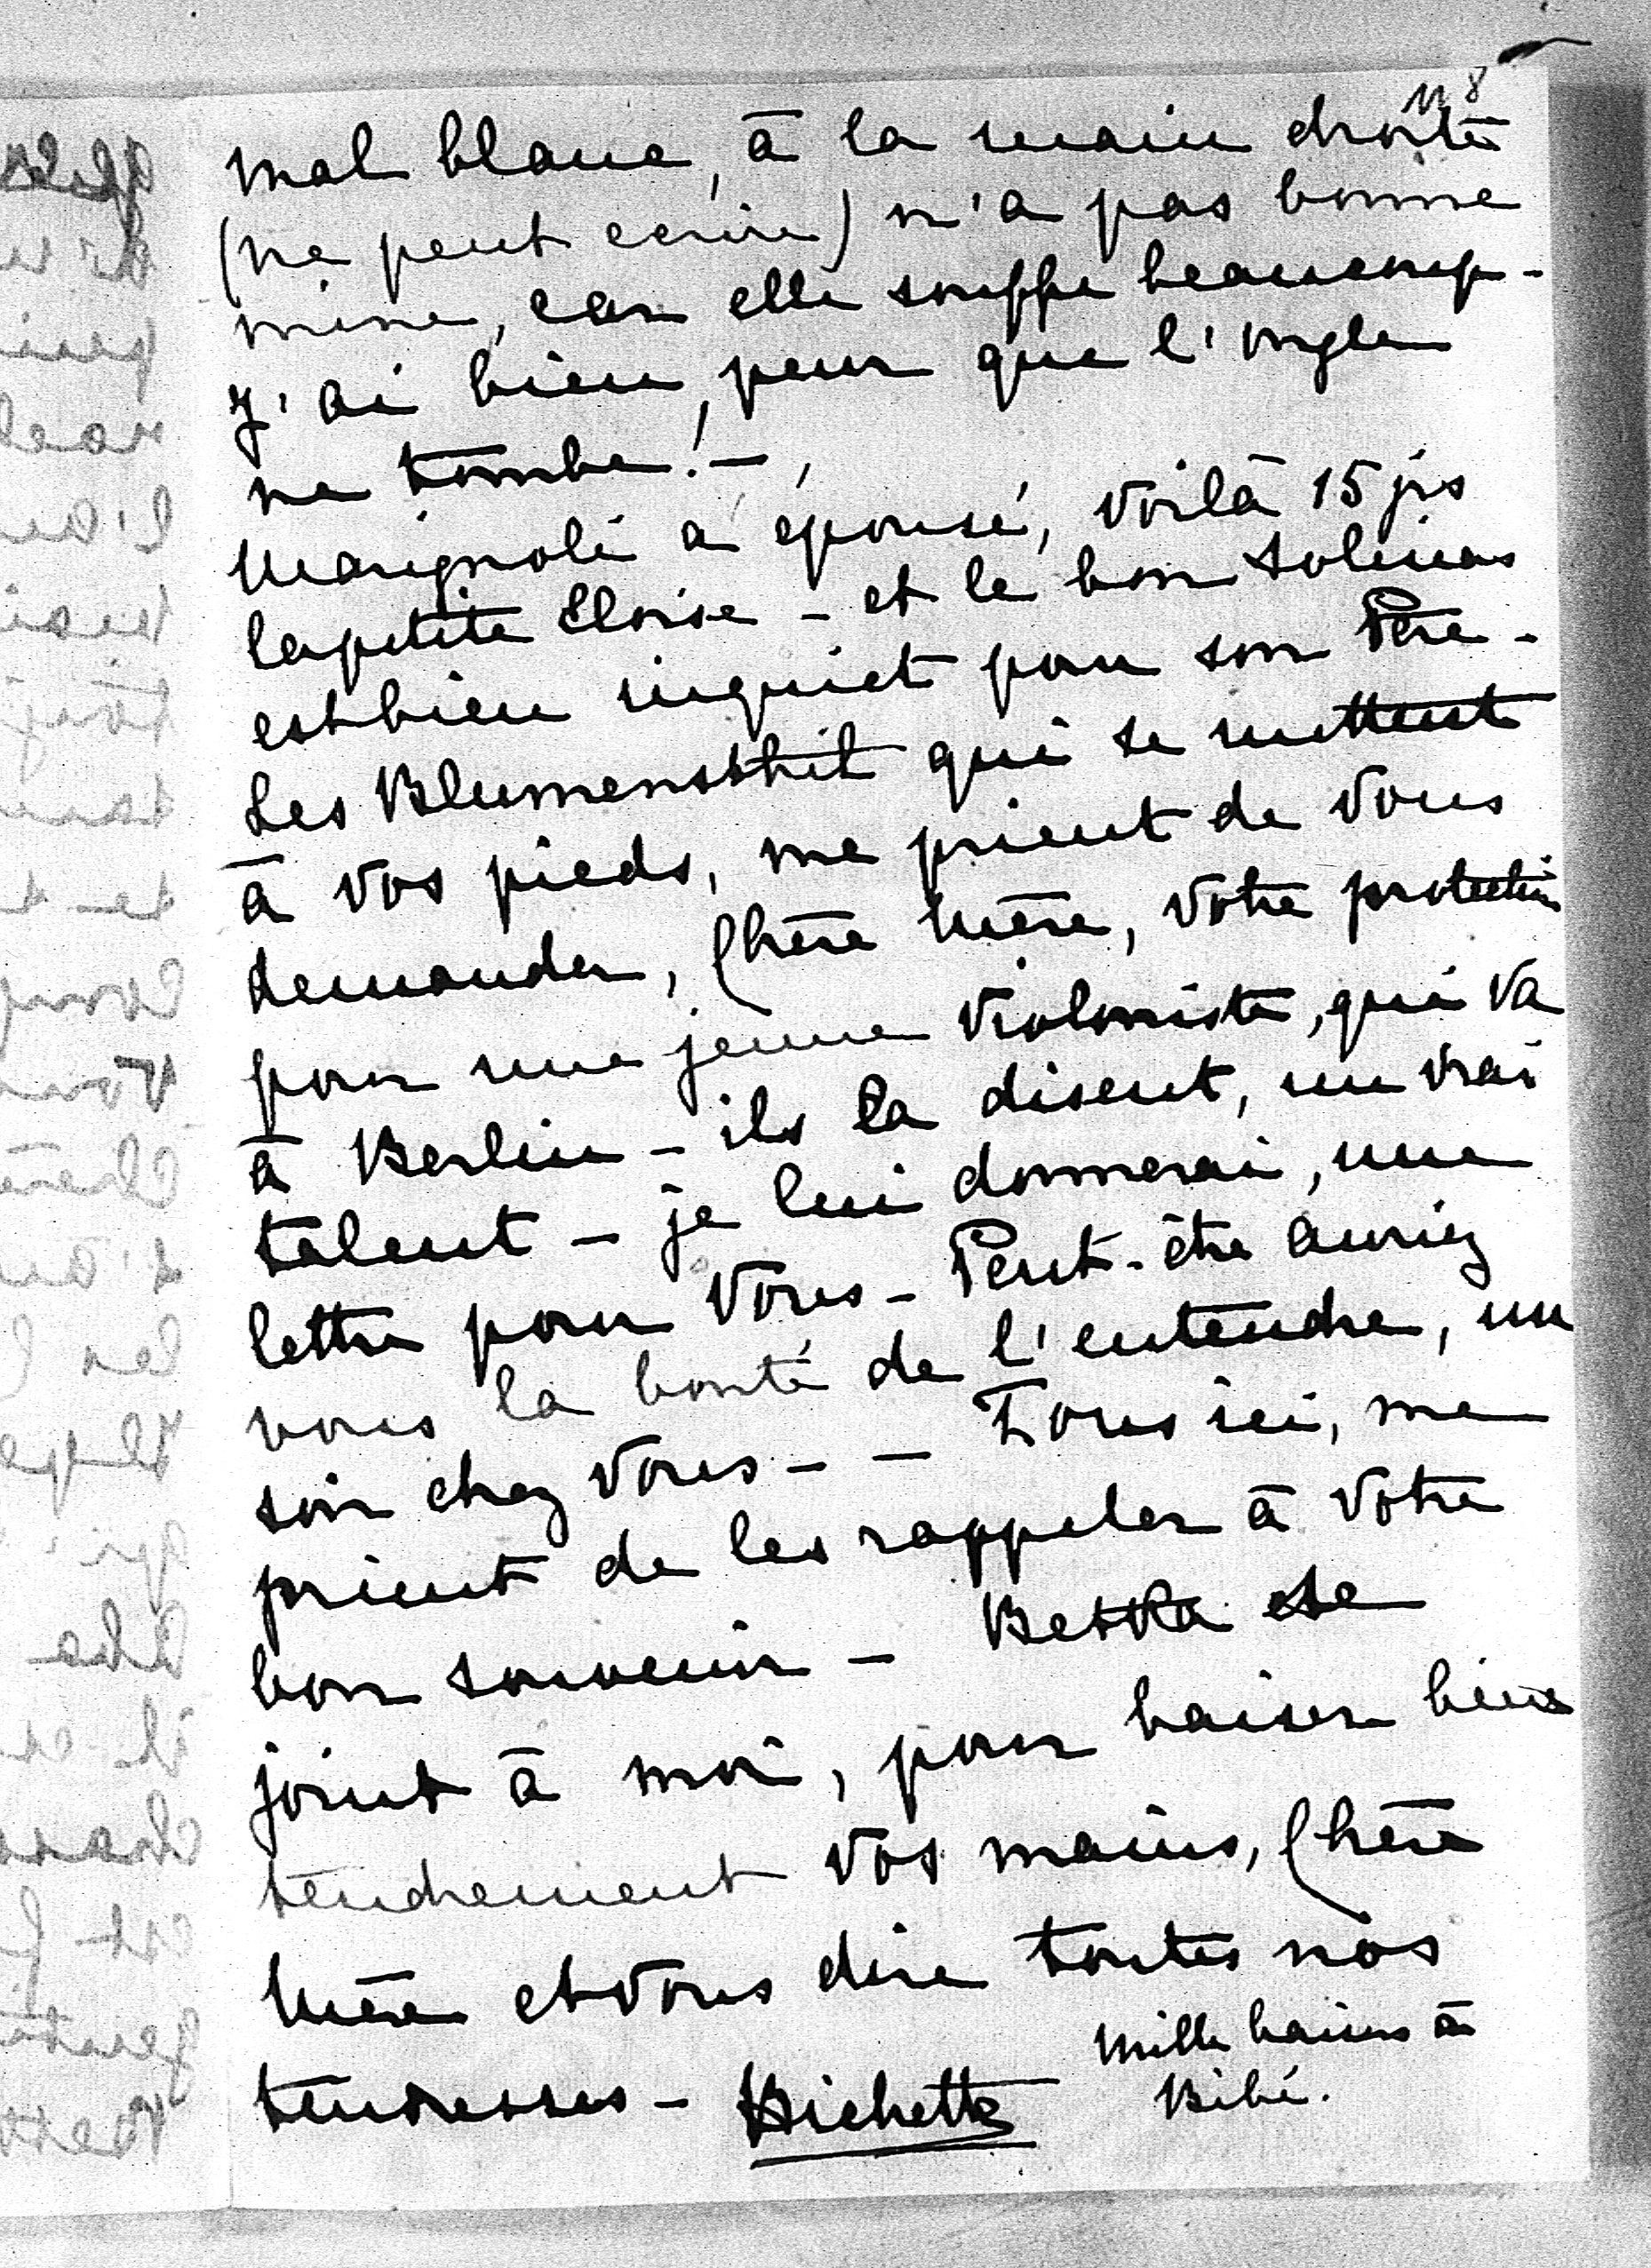 118
mal blanc, à la main droite
(ne peut ecrire) n'a pas bonne
mine, car elle souffre beaucoup -
J'ai bien, peur que l'ongle
ne tombe! -
Marignoli a épousé, voilà 15 jrs
la petite Eloïse - et le bon Solinas
est bien inquiet pour son Père -
Les Blumensthil qui se mettent
à vos pieds, me prient de vous
demander, Chère Mère, votre protection
pour une jeune violoniste, qui va
à Berlin - ils la disent, un vrai
talent - je lui donnerai, une
lettre pour Vous - Peut-être auriez
vous la bonté de l'entendre, un
soir chez Vous - - Tous ici, me
prient de les rappeler à Votre
bon souvenir - se
joint à moi, pour baiser bien
tendrement Vos mains, Chère
Mère et Vous dire toutes nos
tendresses - Bichette
Mille baisers à
Bibé.